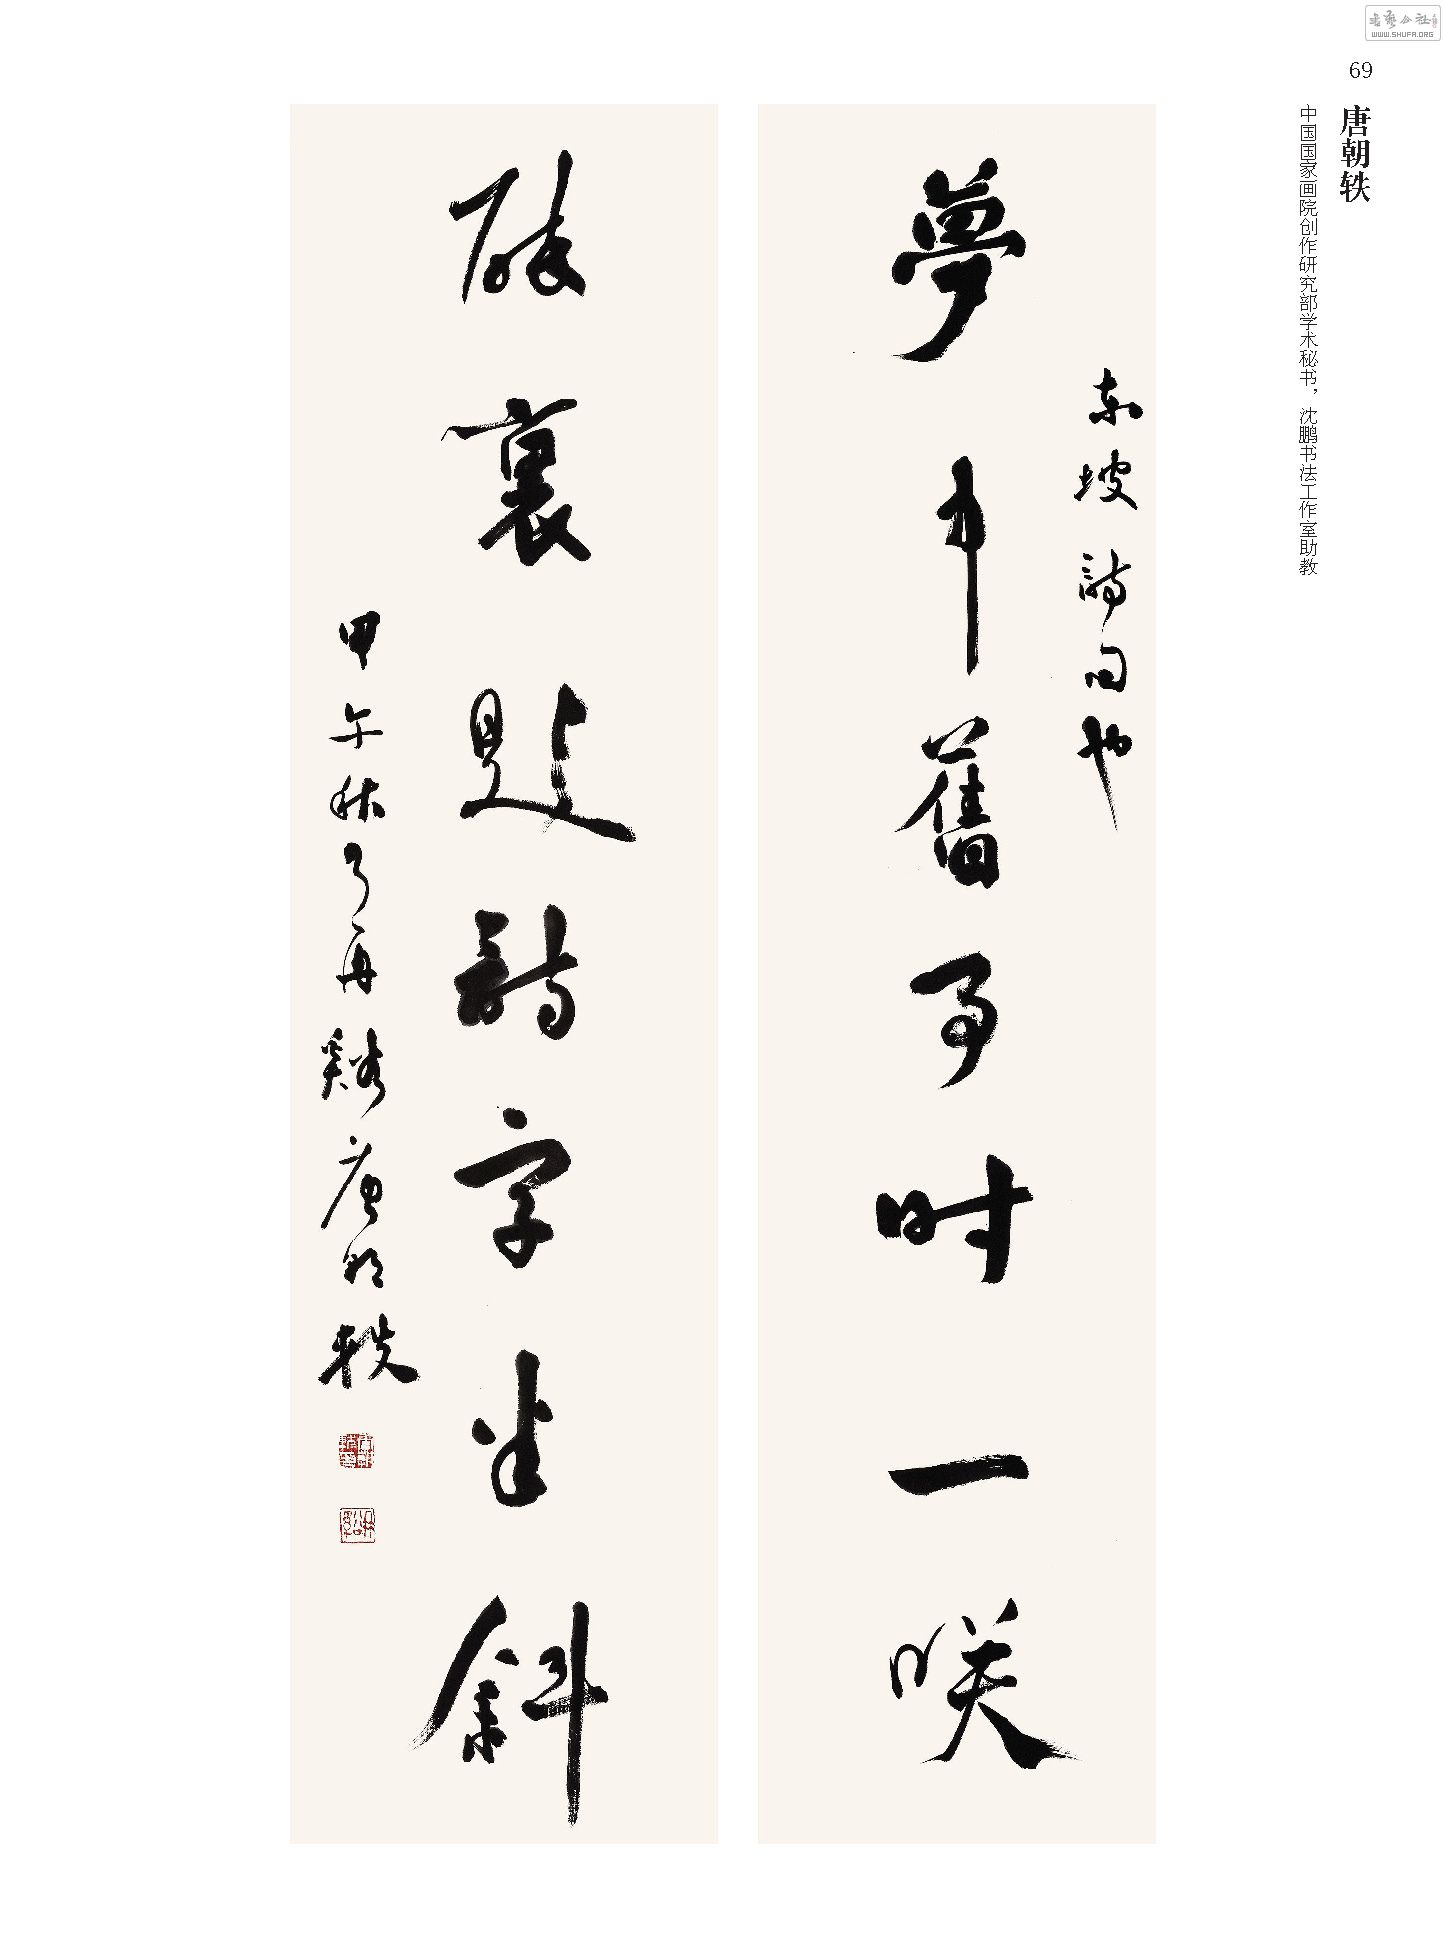 书艺公社
WWW.SHUFA.ORG
69
唐朝轶
中国国家画院创作研究部学术秘书，沈鹏书法工作室助教
東坡詩句也
夢中舊事时一咲
醉裏題詩字半斜
甲午秋月再谿唐朝軼